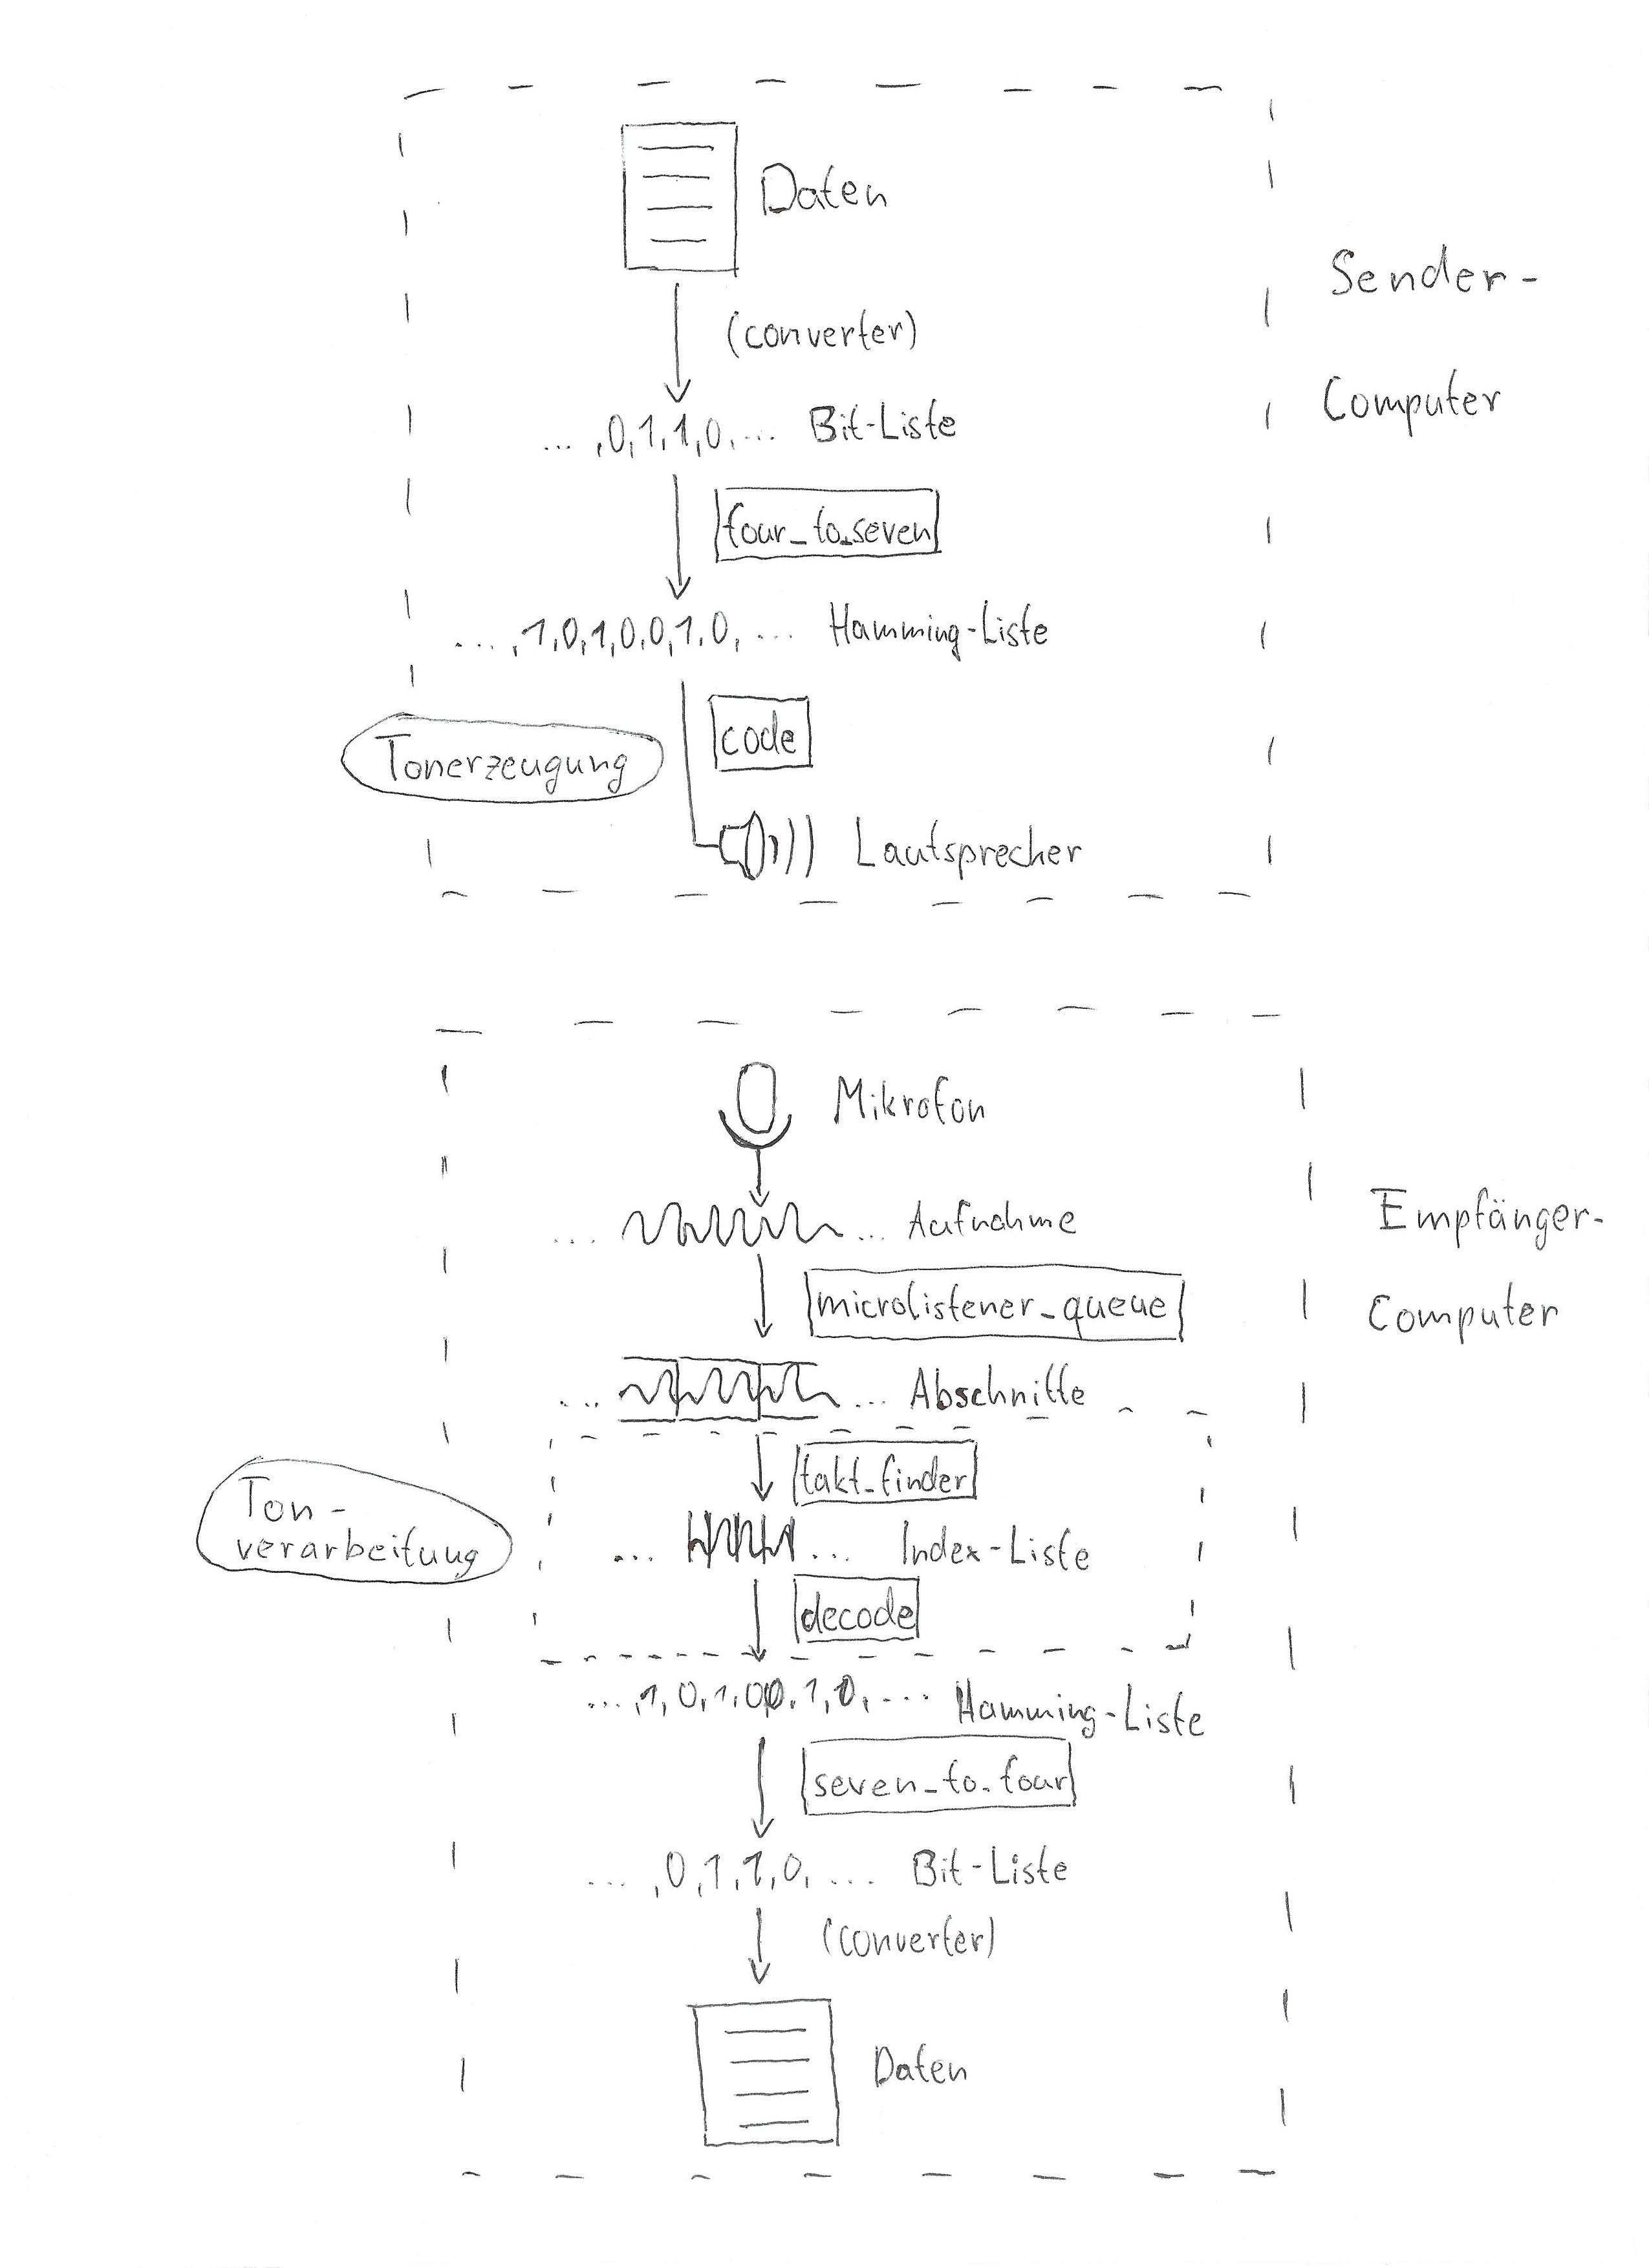 Daten
(converter)
Sender-
Computer
... ,0,1,1,0, ... Bit-Liste
four_to_seven
... ,1,0,1,0,0,1,0, ... Hamming-Liste
code
Tonerzeugung
Lautsprecher
Mikrofon
... Aufnahme
Empfänger-
Computer
microlistener_queue
... ... Abschnitte
takt_finder
Ton-
verarbeitung
... ... Index-Liste
decode
... ,1,0,1,0,0,1,0, ... Hamming-Liste
seven_to_four
... ,0,1,1,0, ... Bit-Liste
(converter)
Daten